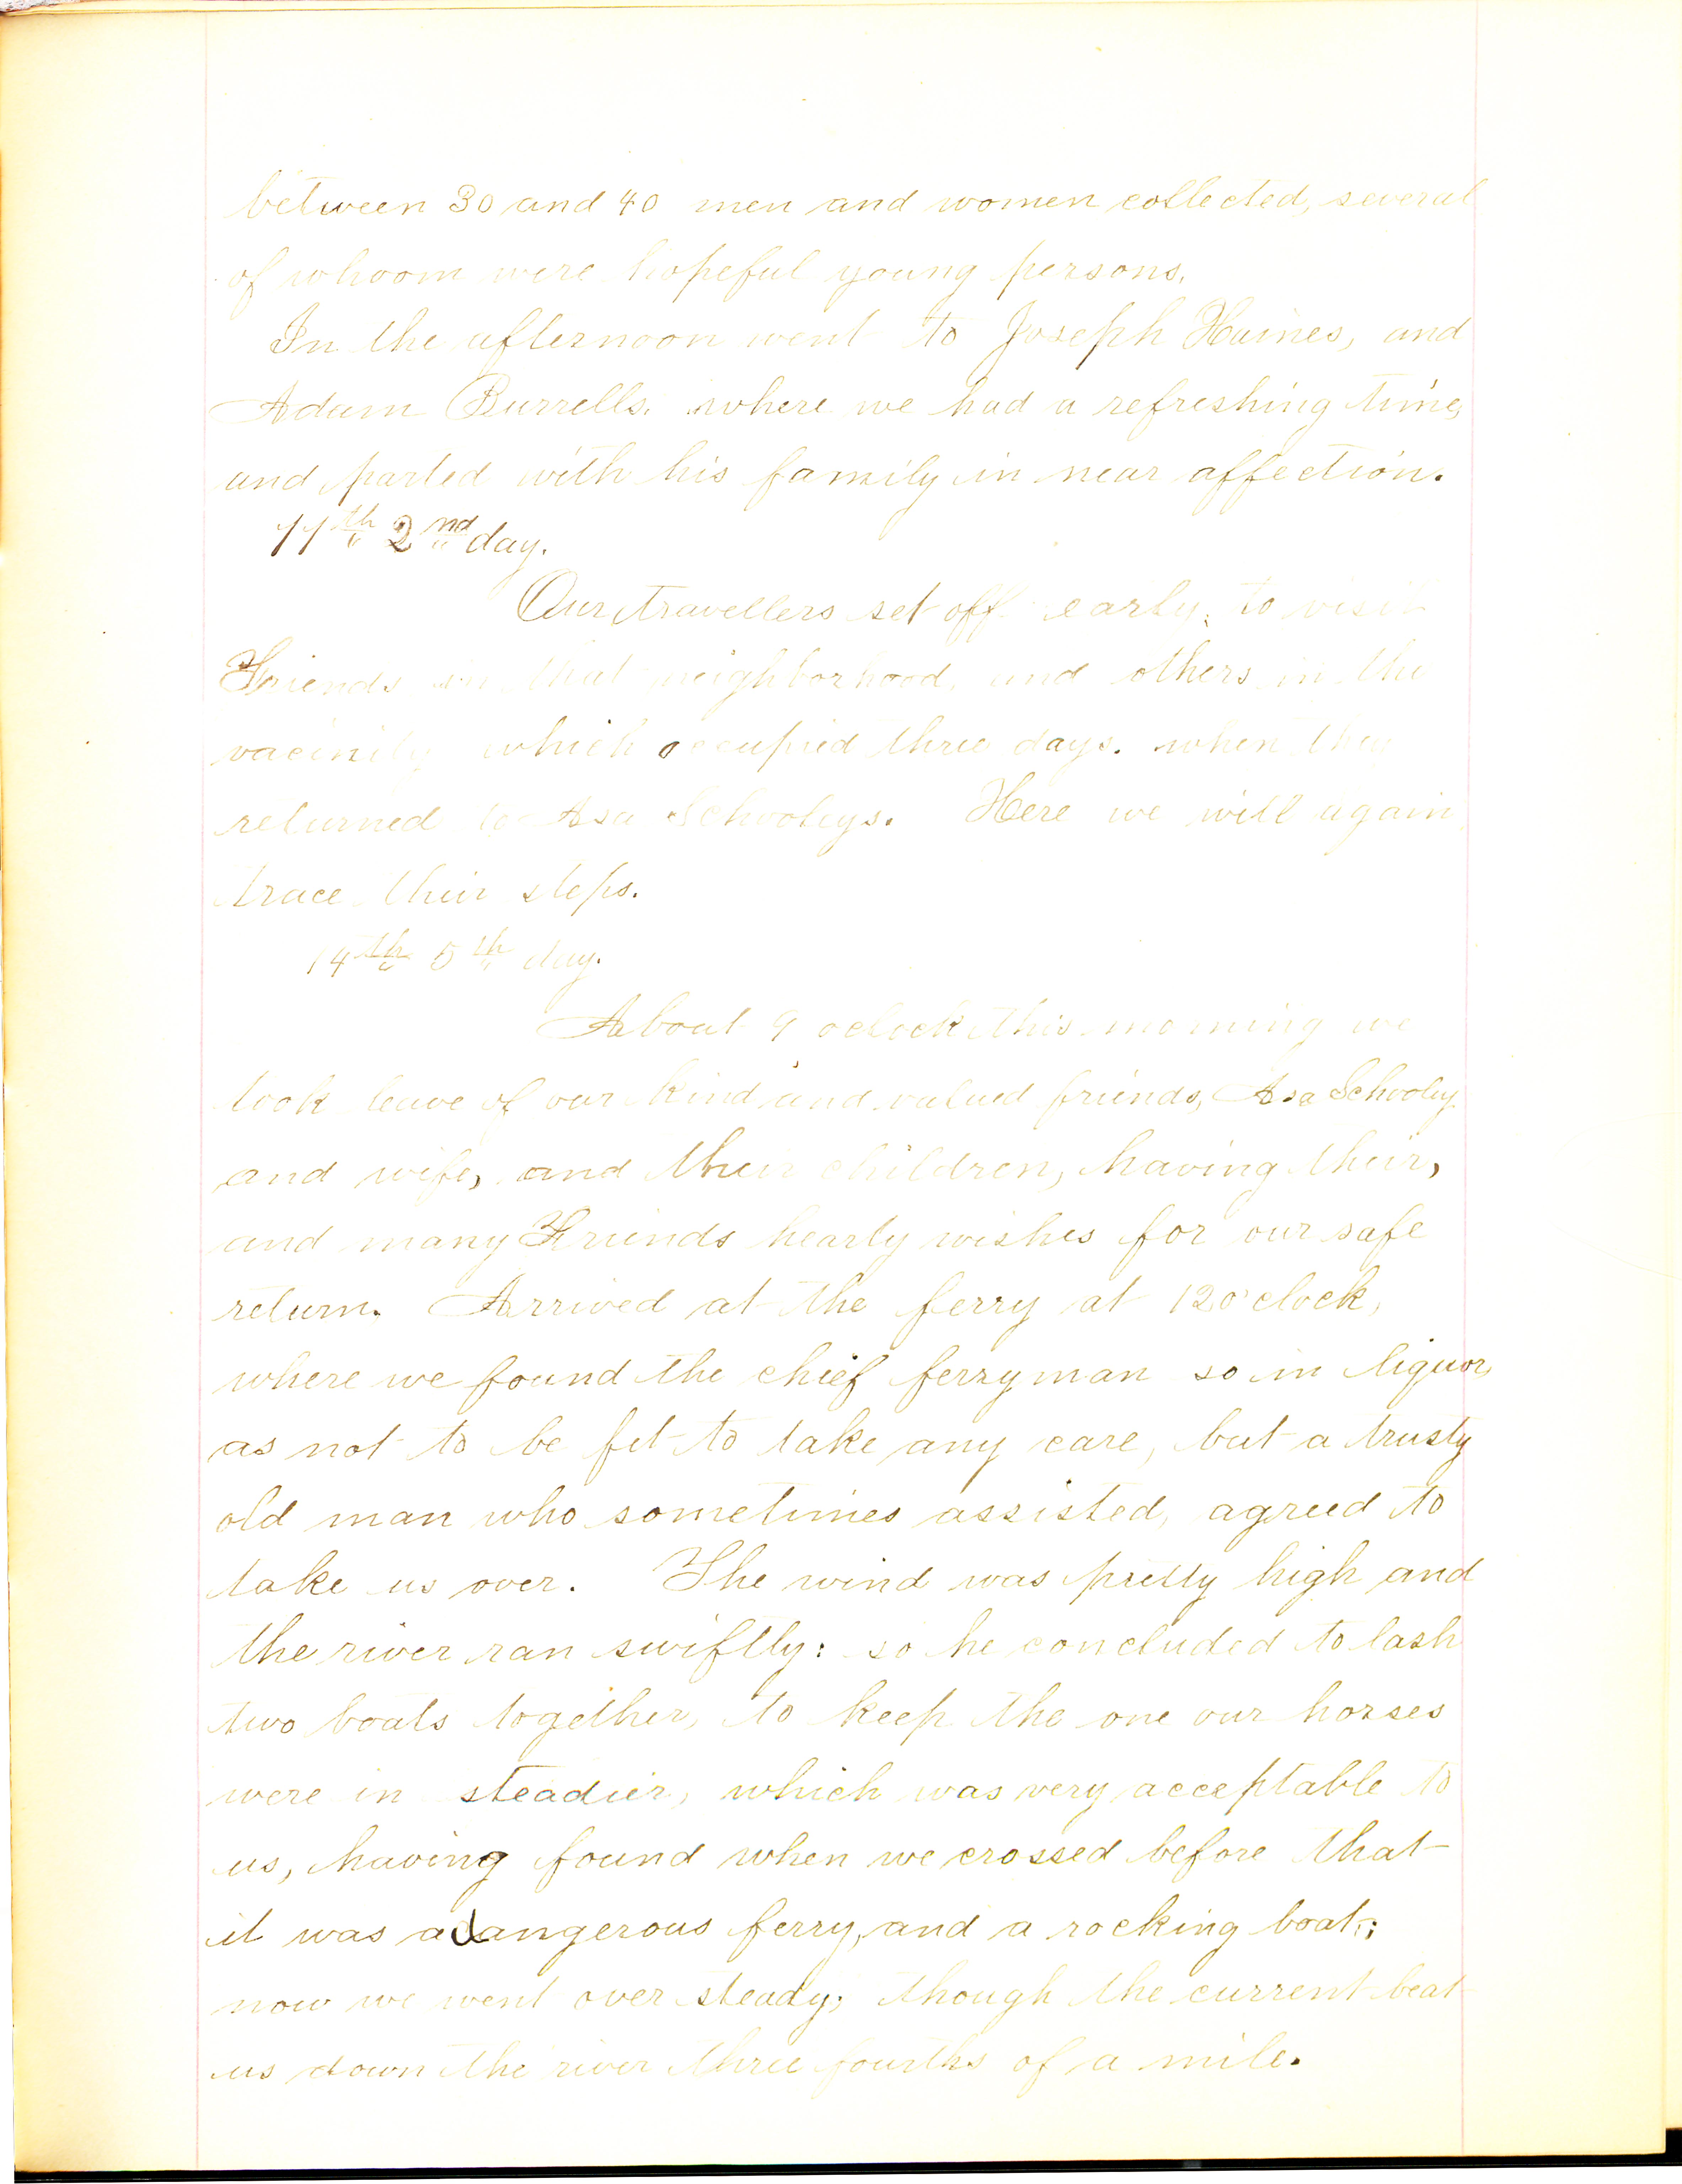 between 30 and 40 men and women collected, several
of whoom were hopeful young persons.
In the afternoon went to Joseph Haines, and
Adam Burrells. where we had a refreshing time,
and parted with his family in near affection.
11th 2nd day.
Our travellers set off early, to visit
Friends in that neighborhood, and others in the
vacinity which occupied three days. when they
returned to Asa Schooleys. Here we will again
trace their steps.
14th 5th day.
About 9 oclock this morning we
took leave of our kind and valued friends, Asa Schooley
and wife, and their children, having their,
and many Friends hearty wishes for our safe
return. Arrived at the ferry at 12 o'clock,
where we found the chief ferryman so in liquor,
as not to be fit to take any care, but a trusty
old man who sometimes assisted, agreed to
take us over. The wind was pretty high and
the river ran swiftly: so he concluded to lash
two boats together, to keep the one our horses
were in steadier, which was very acceptable to
us, having found when we crossed before that
it was a dangerous ferry, and a rocking boat;
now we went over steady; though the current beat
us down the river three fourths of a mile.